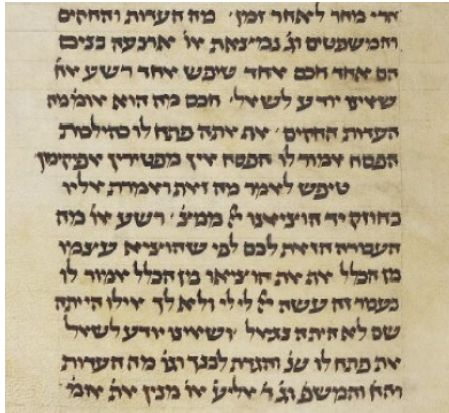 הרי מחר לאחר זמן׳ מה העדות והחקים
והמשפטים וג׳ נמיצאת או׳ ארבעה בנים
הם אחד חכם אחד טיפש אחד רשע אח׳
שאינו יודע לשאל׳ חכם מה הוא אומ׳ מה
העדות החקים׳ אף אתה פתח לו כהילכות
הפסח אמור לו הפסח אין מפטירין אפקימן
טיפש לאמר מה זאת ואמרת אליו
בחוזק יד הוציאנו יי׳ ממצ׳׳ רשע או׳ מה
העבודה הזאת לכם לפי שהוציא עיצמו
מן הכלל אף את הוציאו מן הכלל אמור לו
בעבור זה עשה יי׳ לי לי ולא לך אילו היית׳ה
שם לא היתה ניצאל׳ ושאינו יודע לשאל
את פתח לו שנ׳ והגדת לבנך וגו׳ מה העדות
והח׳ והמשפ׳ וג׳ ר׳ אליע׳ או׳ מנין את׳ אומ׳